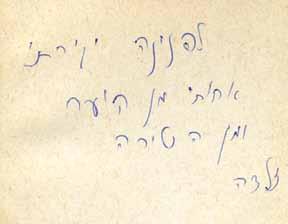 לפנינה יקירתי
אחותי מן היער
ומן השירה
זלדה